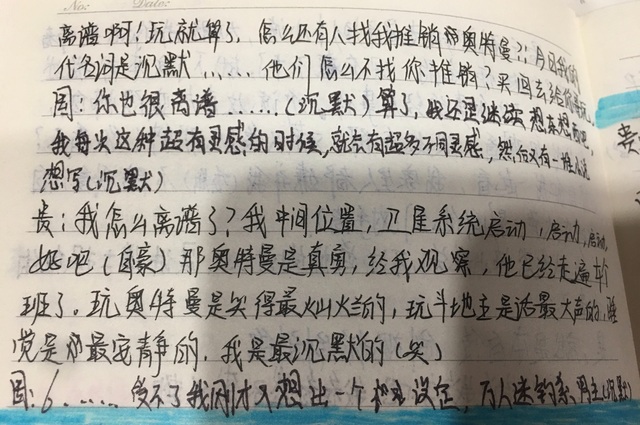 No:    Date:
离谱啊!玩就算了,怎么还有人找我推销 奥特曼?!今日我的
代名词是沉默……他们怎么不找你推销?买回去给你
周:你也很离谱……(沉默)算了,我还是继续想东想西吧,
我每次这种超有灵感的时候,就会有超多不同灵感,然后又有一堆
想写(沉默)
贵:我怎么离谱了?我中间位置,卫星系统启动,启动,启动,
好吧(自豪)那奥特曼是真勇,经我观察,他已经走遍半个
班了。玩奥特曼是笑得最灿烂的,玩斗地主是话最大声的,睡
觉是 最安静的,我是最沉默的(笑)
周:6……受不了我刚才又想出一个 设定,万人迷 男主(沉默)
贵